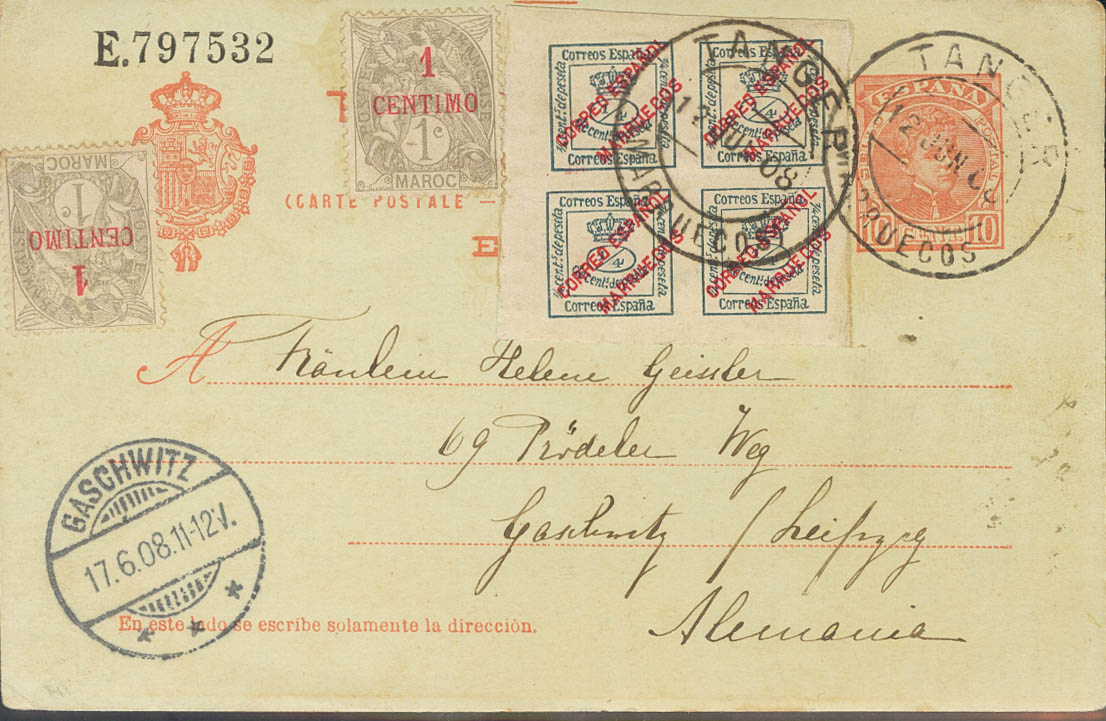 E.797532
FRANÇAISE
POSTES
1
CENTIMO
1c
MAROC
MAROC
1
1
CENTIMO
(CARTE POSTALE —
E
Correos España
¼ centº de peseta
CORREO ESPAÑOL
MARRUECOS
Correos España
Correos España
¼ centº de peseta
CORREO ESPAÑOL
MARRUECOS
Correos España
Correos España
¼ centº de peseta
CORREO ESPAÑOL
MARRUECOS
Correos España
Correos España
¼ centº de peseta
CORREO ESPAÑOL
MARRUECOS
Correos España
TANGER
12 JUN 08
MARRUECOS
ESPAÑA
10
TANGER
12 JUN 08
MARRUECOS
A Fräulein Helene Geissler
69 Prödeler Weg
Gaschwitz / Leipzig
Alemania
GASCHWITZ
17.6.08.11-12V.
* * *
En este lado se escribe solamente la dirección.